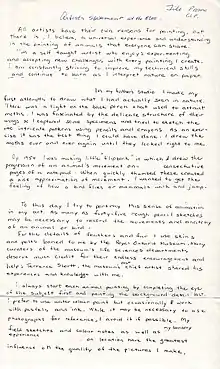 Artists Statement
All artists have their own reasons for painting, but
there is, I believe, a universal experience and understanding
in the painting of animals that everyone can share.
I'm a self taught artist who enjoys experimenting
and accepting new challenges, with every painting I create.
I am constantly striving to improve my technical skills
and continue to learn as I interpret nature on paper.
In my father's studio I made my
first attempts to draw what I had actually seen in nature.
There was a light on the back porch that used to attract
moths, I was fascinated by the delicate structure of their
wings so I captured some specimens and tried to sketch
the intricate patterns using pencils and crayons. As an
it was the best thing I could have done, I drew the
moths over and over again until they looked right to me.
I was making little flipbooks in which I drew the
progression of an animal's movement on consecutive
pages of material. When quickly thumbed these created
a approximation of movement. I wanted to get the
feeling of how a or mammals walk and jump.
To this day I try to portray this sense of animation
in my art. As many as forty-five rough pencil sketches
may be necessary to resolve the movements and anatomy
of an animal or bird.
For the details of feathers and fur I use skins
and pelts loaned to me by the Royal Ontario Museum. Many
curators of the museum's life sciences departments
deserve much credit for their endless encouragement and
help. Terence Shortt, the museum's chief artist shared his
and knowledge with me.
I always start each animal painting by completing the eye
of the subject first and painting the background detail last.
I prefer to use water colour paint but occasionally I work
with pastels, and ink. While it may be necessary to use
photographs for reference, I avoid it if possible. My
field sketches and colour notes as well as my memory
experience on location have the greatest
influence on the quality of the pictures I make,